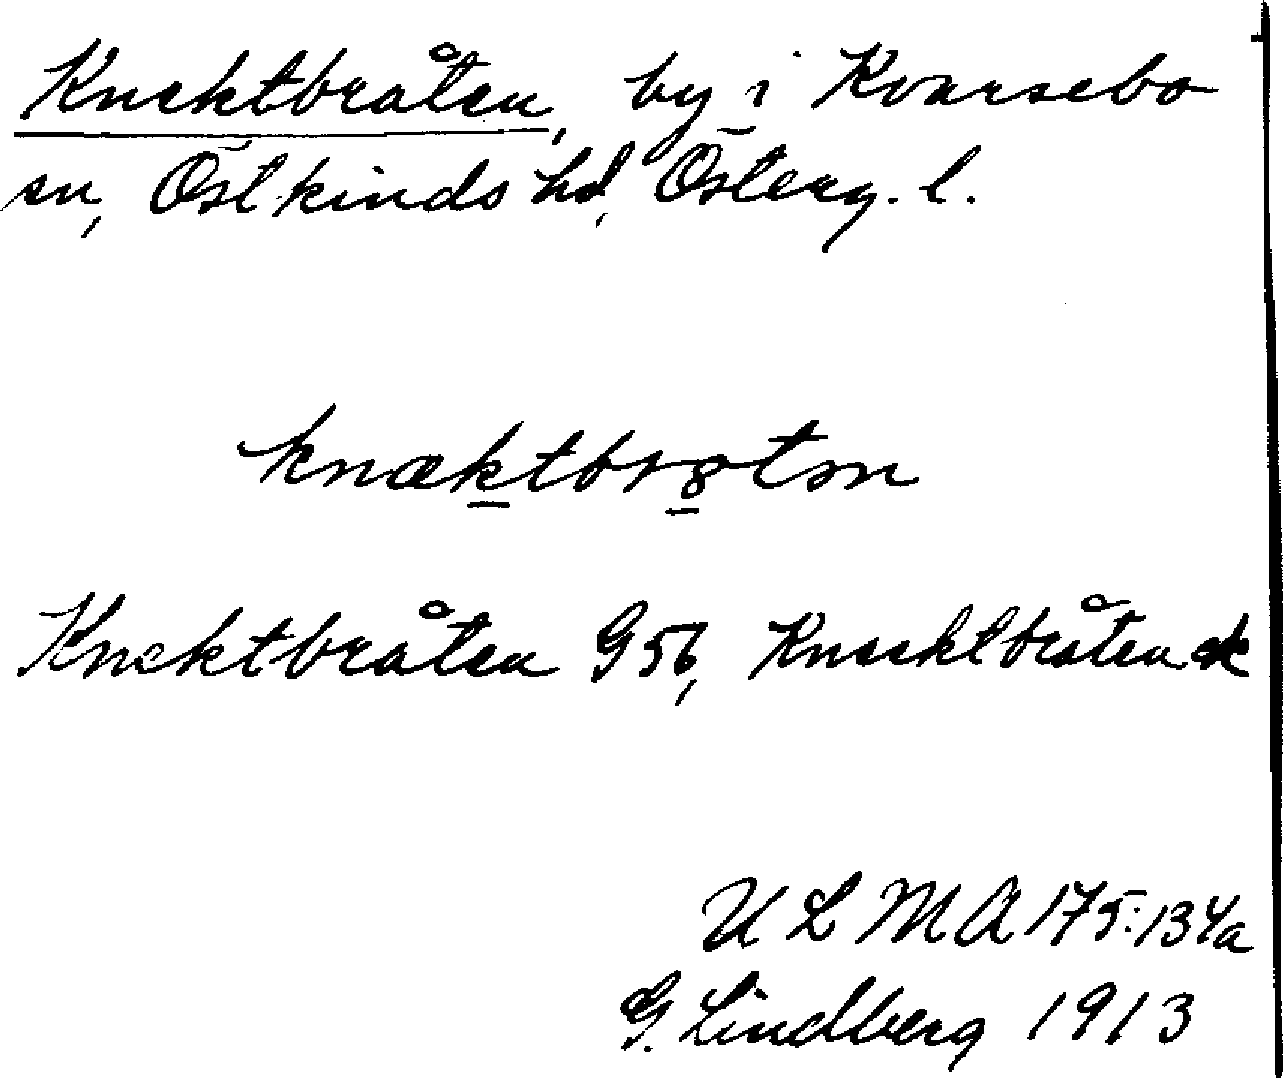 Knektbråten, by i Kvarsebo
sn, Östkinds hd, Österg. l.
knæktbrꝏtən
Knektbråten G 56, Knecktbråten ek
U L M A 175:134a
G. Lindberg 1913